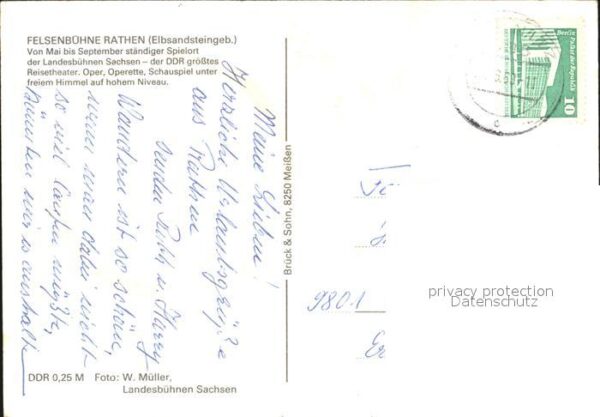 FELSENBÜHNE RATHEN (Elbsandsteingeb.)
Von Mai bis September ständiger Spielort
der Landesbühnen Sachsen – der DDR größtes
Reisetheater. Oper, Operette, Schauspiel unter
freiem Himmel auf hohem Niveau.
Meine Lieben!
Herzliche Urlaubsgrüße
aus Rathen
senden Ruth u. Harry
Wandern ist so schön,
wenn man dabei nicht
so viel laufen müßte,
wir's
DDR 0,25 M Foto: W. Müller,
Landesbühnen Sachsen
Brück & Sohn, 8250 Meißen
Berlin, Palast der Republik
10
9801
privacy protection
Datenschutz